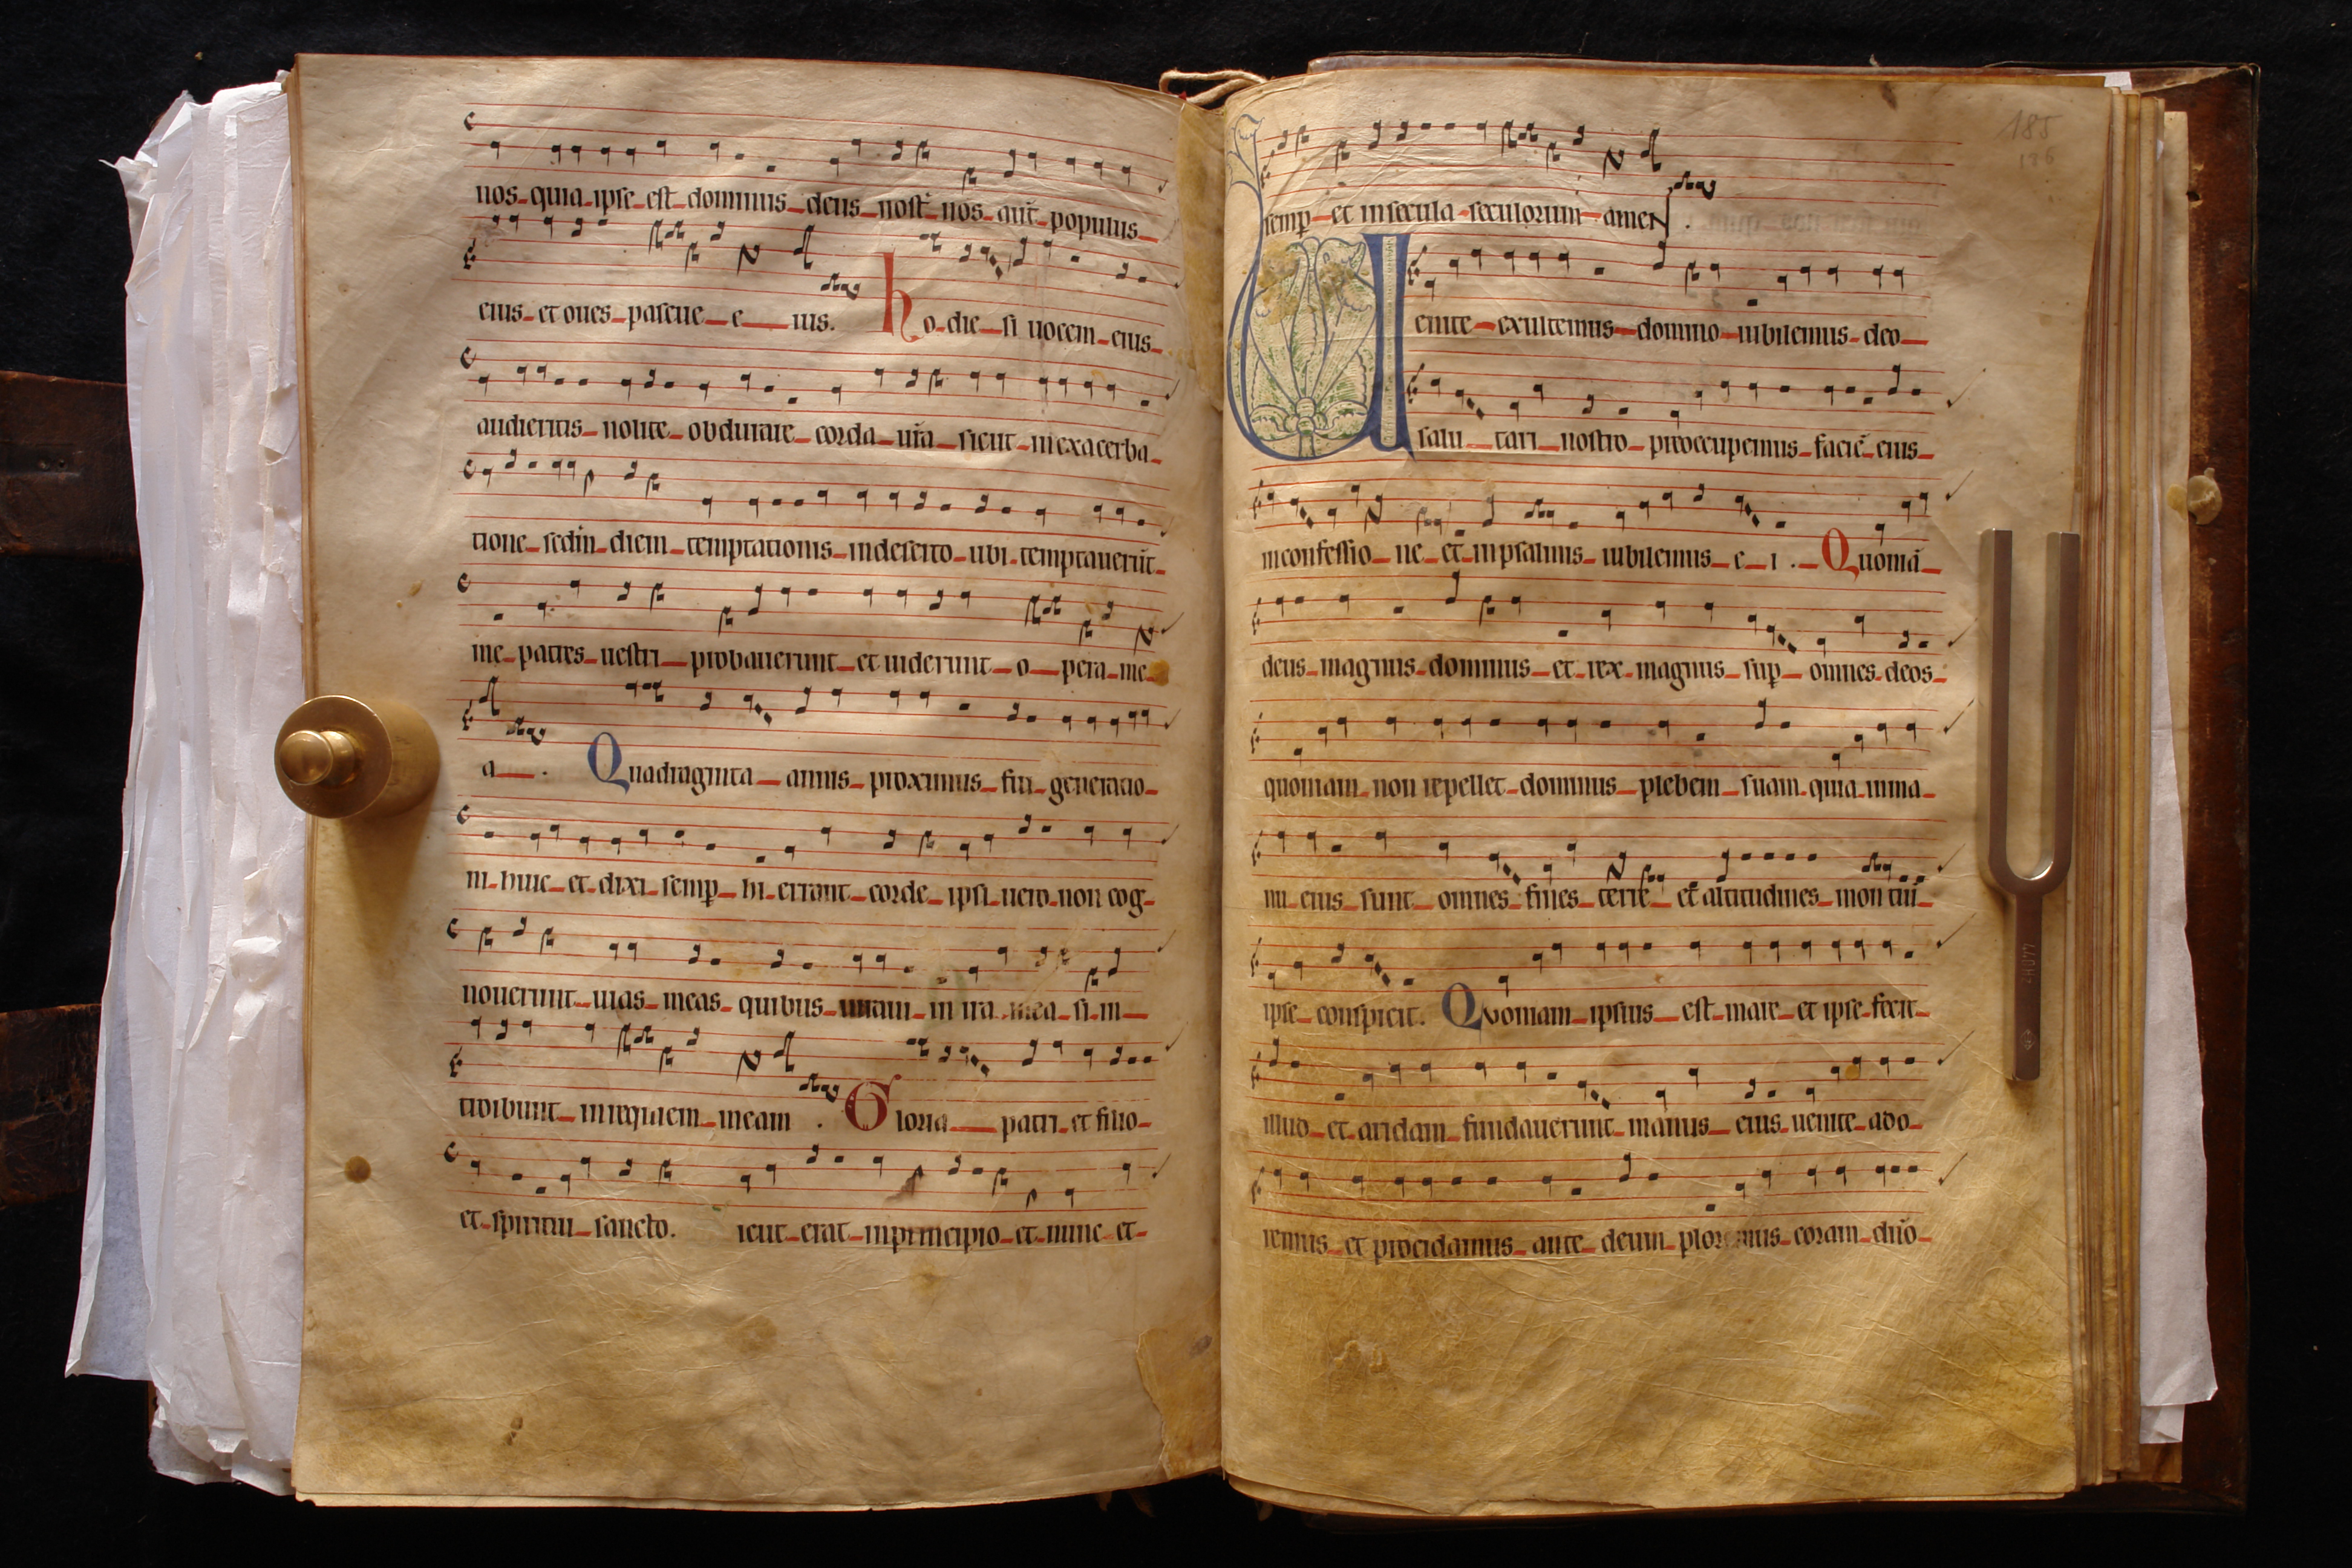 nos quia ipse est dominus deus nost̄ nos aut̄ populus
eius et oues pascue e ius. hodie si uocem eius
audieritis nolite obdurare corda ur̄a sicut inexacerba
tione scd̄m diem temptationis indeserto ubi temptauerūt
me patres uestri probauerunt et uiderunt o pera me
a . Quadraginta annis proximus fui generatio
ni huic et dixi semꝑ hi errant corde ipsi uero non cog
nouerunt uias meas quibus iuraui in ira mea si in
troibunt inrequiem meam . Gloria patri et filio
et spiritui sancto. icut erat inprincipio et nunc et
185
186
semꝑ et insecula seculorum amen .
Uenite exultemus domino iubilemus deo
salu tari nostro preoccupemus faciē eius
inconfessio ne et inpsalmis iubilemus e i . Quoniā
deus magnus dominus et rex magnus suꝑ omnes deos
quoniam non repellet dominus plebem suam quia inma
nu eius sunt omnes fines terre et altitudines montiū
ipse conspicit. Quoniam ipsius est mare et ipse fecit
illud et aridam fundauerunt manus eius uenite ado
remus et procidamus ante deum ploremus coram dn̄o